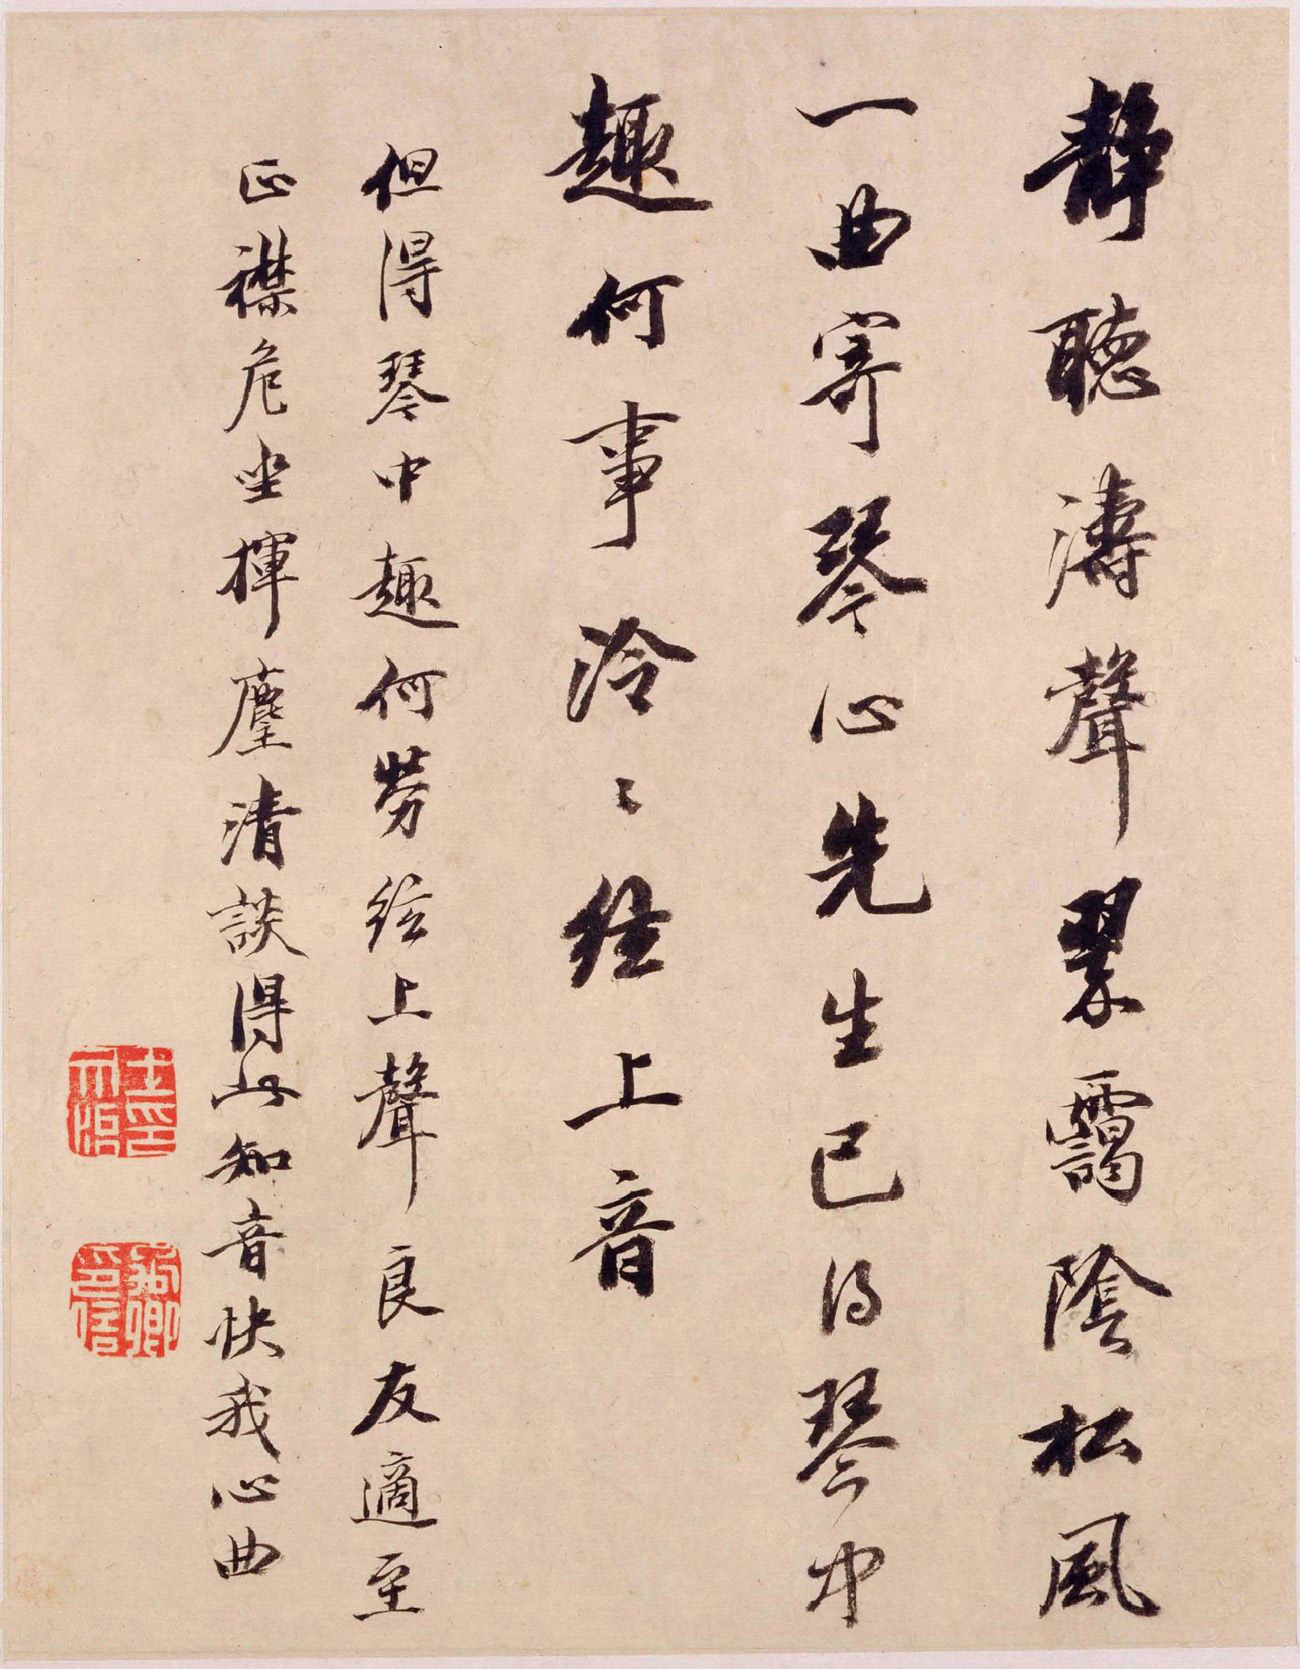 靜聽濤聲翠靄陰松風
一曲寄琴心先生已得琴中
趣何事泠〻絃上音
但得琴中趣何勞絃上聲良友適至
正襟危坐揮麈清談得此知音快我心曲